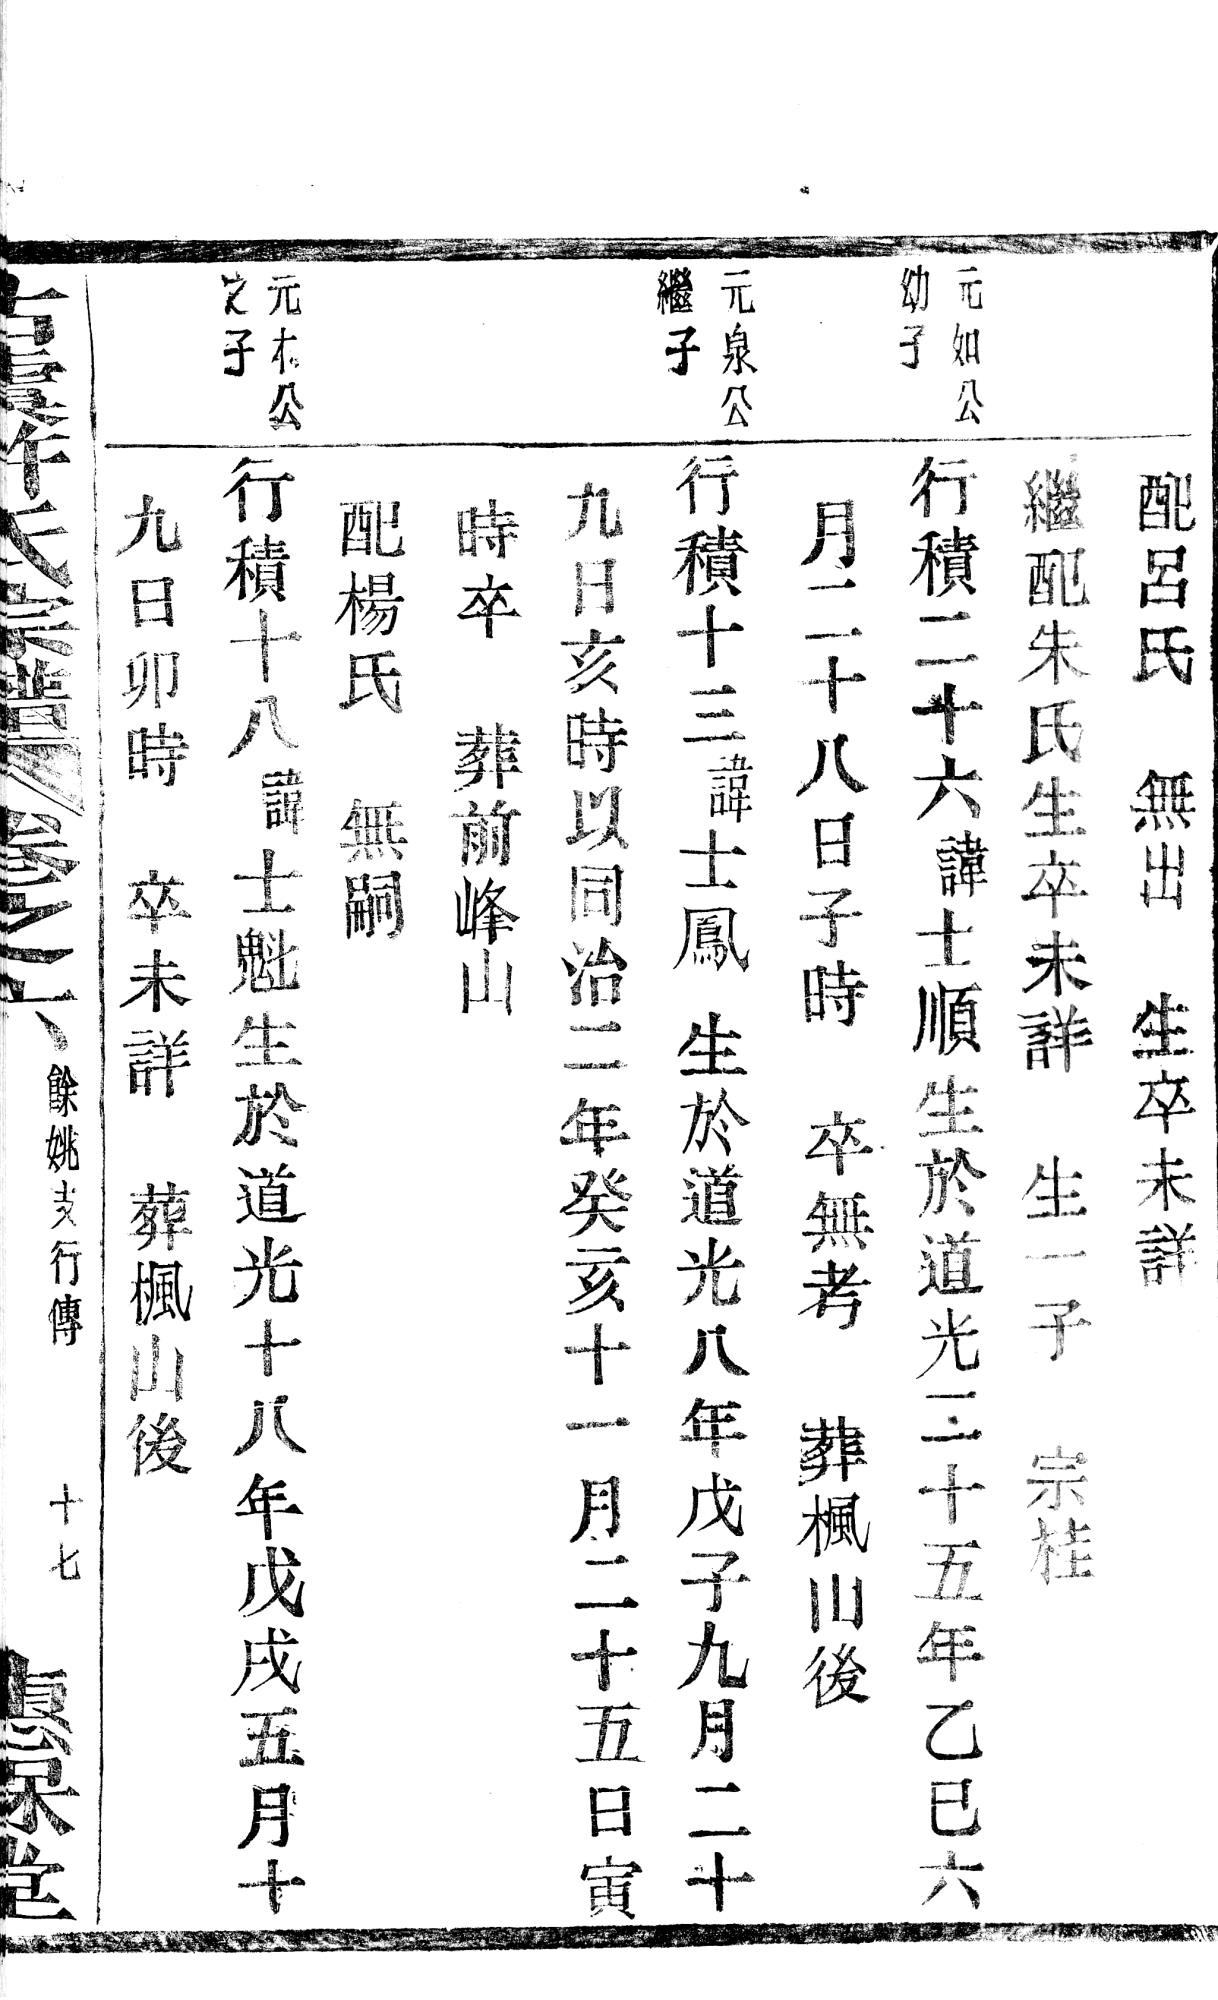 配呂氏　無出　生卒未詳
繼配朱氏生卒未詳　生一子　宗桂
元如公
幼子
行積二十六諱士順生於道光二十五年乙巳六
月二十八日子時　卒無考　葬楓山後
元泉公
繼子
行積十三諱士鳳　生於道光八年戊子九月二十
九日亥時以同治二年癸亥十一月二十五日寅
時卒　葬前峰山
配楊氏　無嗣
元　公
之子
行積十八諱士魁生於道光十八年戊戌五月十
九日卯時　卒未詳　葬楓山後
古虞許氏宗譜　卷之六　餘姚支行傳　十七　堂